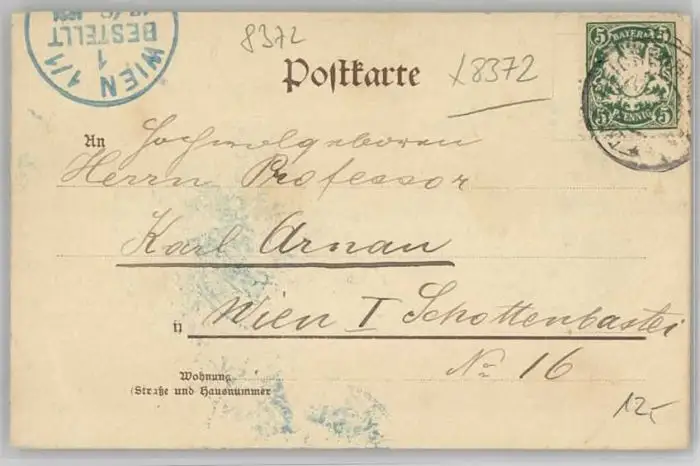 WIEN 1/1
1
BESTELLT
8372
Postkarte
x8372
BAYERN
5 5
5 PFENNIG 5
An Hochwolgeboren
Herrn Professor
Karl Arnau
in Wien I Schottenbastei
No 16
Wohnung
(Straße und Hausnummer
12,-